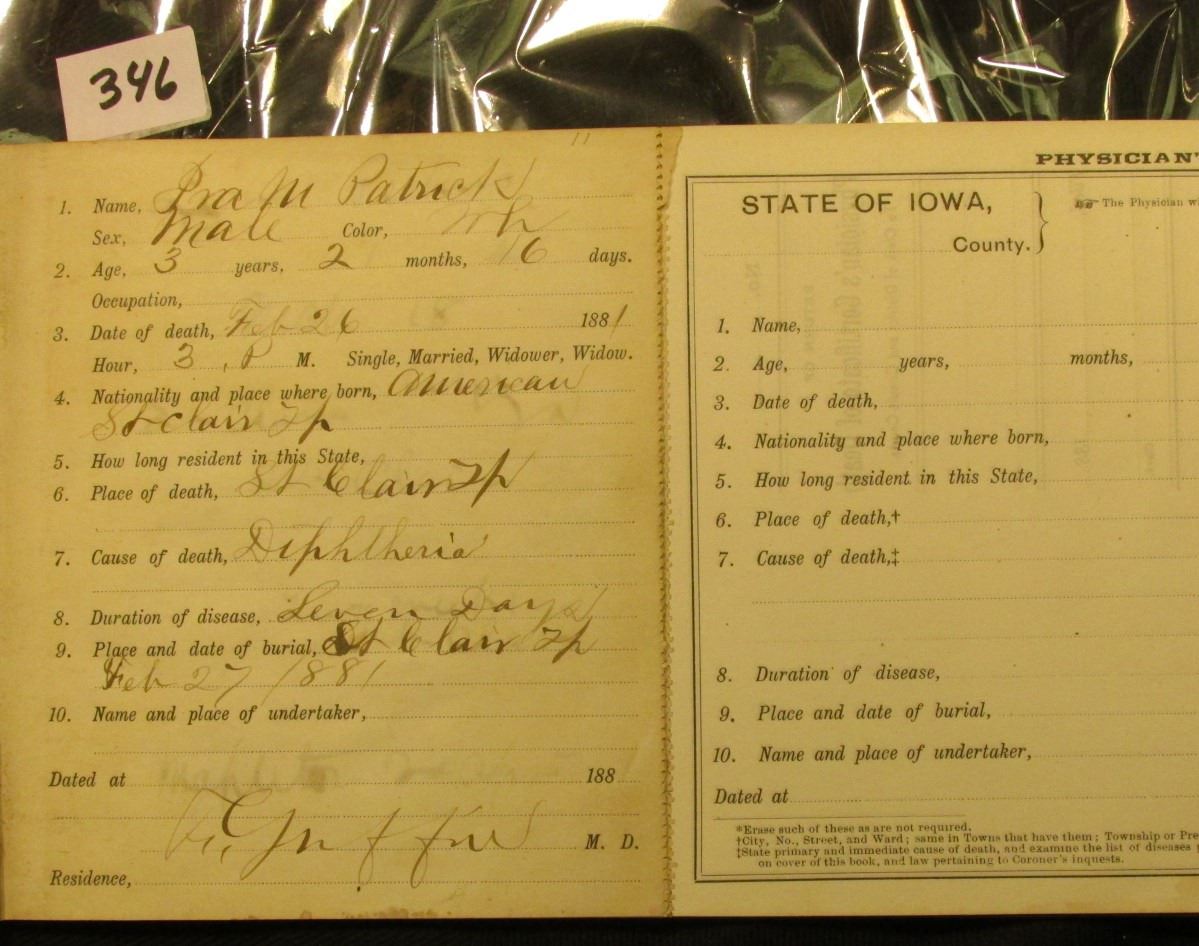 346
11
1. Name, Ira M Patrick
Sex, Male Color, Wh
2. Age, 3 years, 2 months, 16 days.
Occupation,
3. Date of death, Feb 26 1881
Hour, 3, P M. Single, Married, Widower, Widow.
4. Nationality and place where born, American
St Clair Tp
5. How long resident in this State,
6. Place of death, St Clair Tp
7. Cause of death, Diphtheria
8. Duration of disease, Seven Days
9. Place and date of burial, St Clair Tp
Feb 27 1881
10. Name and place of undertaker,
Dated at 188
M. D.
Residence,
PHYSICIAN'
STATE OF IOWA,
County.
The Physician w
1. Name,
2. Age, years, months,
3. Date of death,
4. Nationality and place where born,
5. How long resident in this State,
6. Place of death,†
7. Cause of death,‡
8. Duration of disease,
9. Place and date of burial,
10. Name and place of undertaker,
Dated at
*Erase such of these as are not required.
†City, No., Street, and Ward; same in Towns that have them; Township or Pre
‡State primary and immediate cause of death, and examine the list of diseases
on cover of this book, and law pertaining to Coroner's inquests.